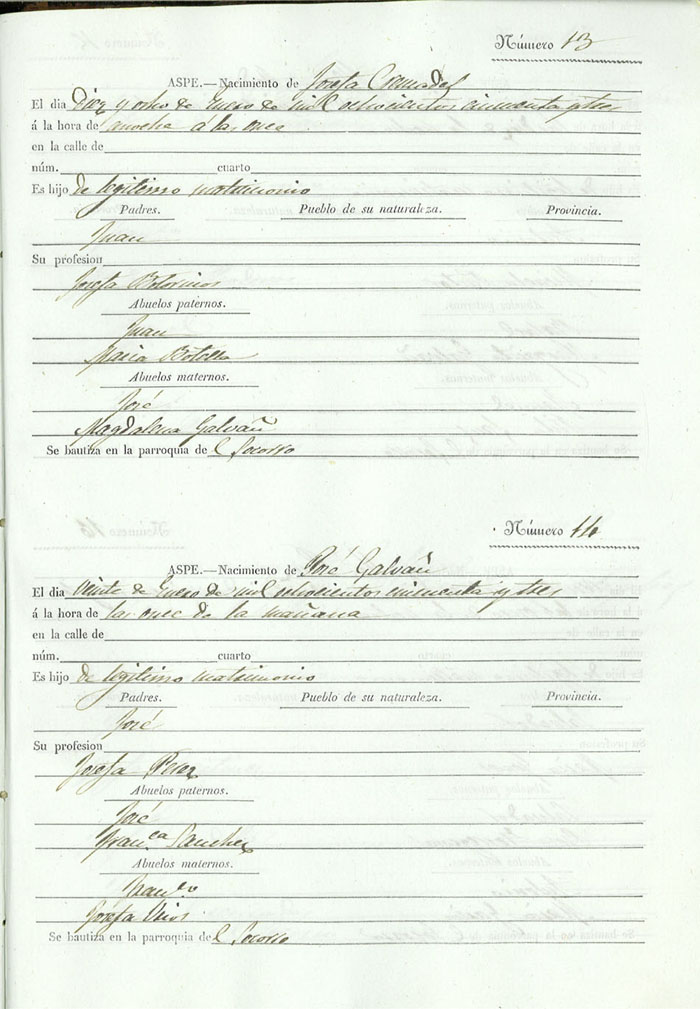 Número 13
ASPE.—Nacimiento de Josefa Cremades
El dia Diez y ocho de Enero de mil ochocientos cincuenta y tres
á la hora de anoche á las once
en la calle de
núm. cuarto
Es hijo de legitimo matrimonio
Padres. Pueblo de su naturaleza. Provincia.
Juan
Su profesion
Josefa
Abuelos paternos.
Juan
Maria Botella
Abuelos maternos.
José
Magdalena Galvañ
Se bautiza en la parroquia de l Socorro
Número 14
ASPE.—Nacimiento de José Galvañ
El dia veinte de Enero de mil ochocientos cincuenta y tres
á la hora de las once de la mañana
en la calle de
núm. cuarto
Es hijo de legitimo matrimonio
Padres. Pueblo de su naturaleza. Provincia.
José
Su profesion
Josefa Perez
Abuelos paternos.
José
Fran.ca Sanchez
Abuelos maternos.
Fran.co
Josefa
Se bautiza en la parroquia de l Socorro